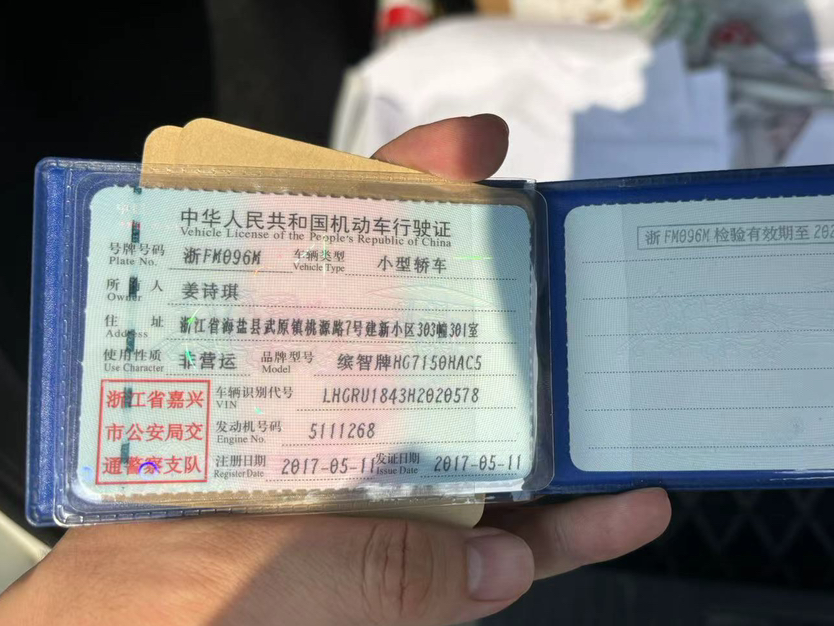 中华人民共和国机动车行驶证
Vehicle License of the People's Republic of China
号牌号码 浙FM096M 车辆类型 小型轿车
Plate No. Vehicle Type
所有人 姜诗琪
Owner
住址 浙江省海盐县武原镇桃源路7号建新小区303幢301室
Address
使用性质 非营运 品牌型号 缤智牌HG7150HAC5
Use Character Model
浙江省嘉兴
市公安局交
通警察支队
车辆识别代号 LHGRU1843H2020578
VIN
发动机号码 5111268
Engine No.
注册日期 2017-05-11 发证日期 2017-05-11
Register Date Issue Date
浙FM096M 检验有效期至 202